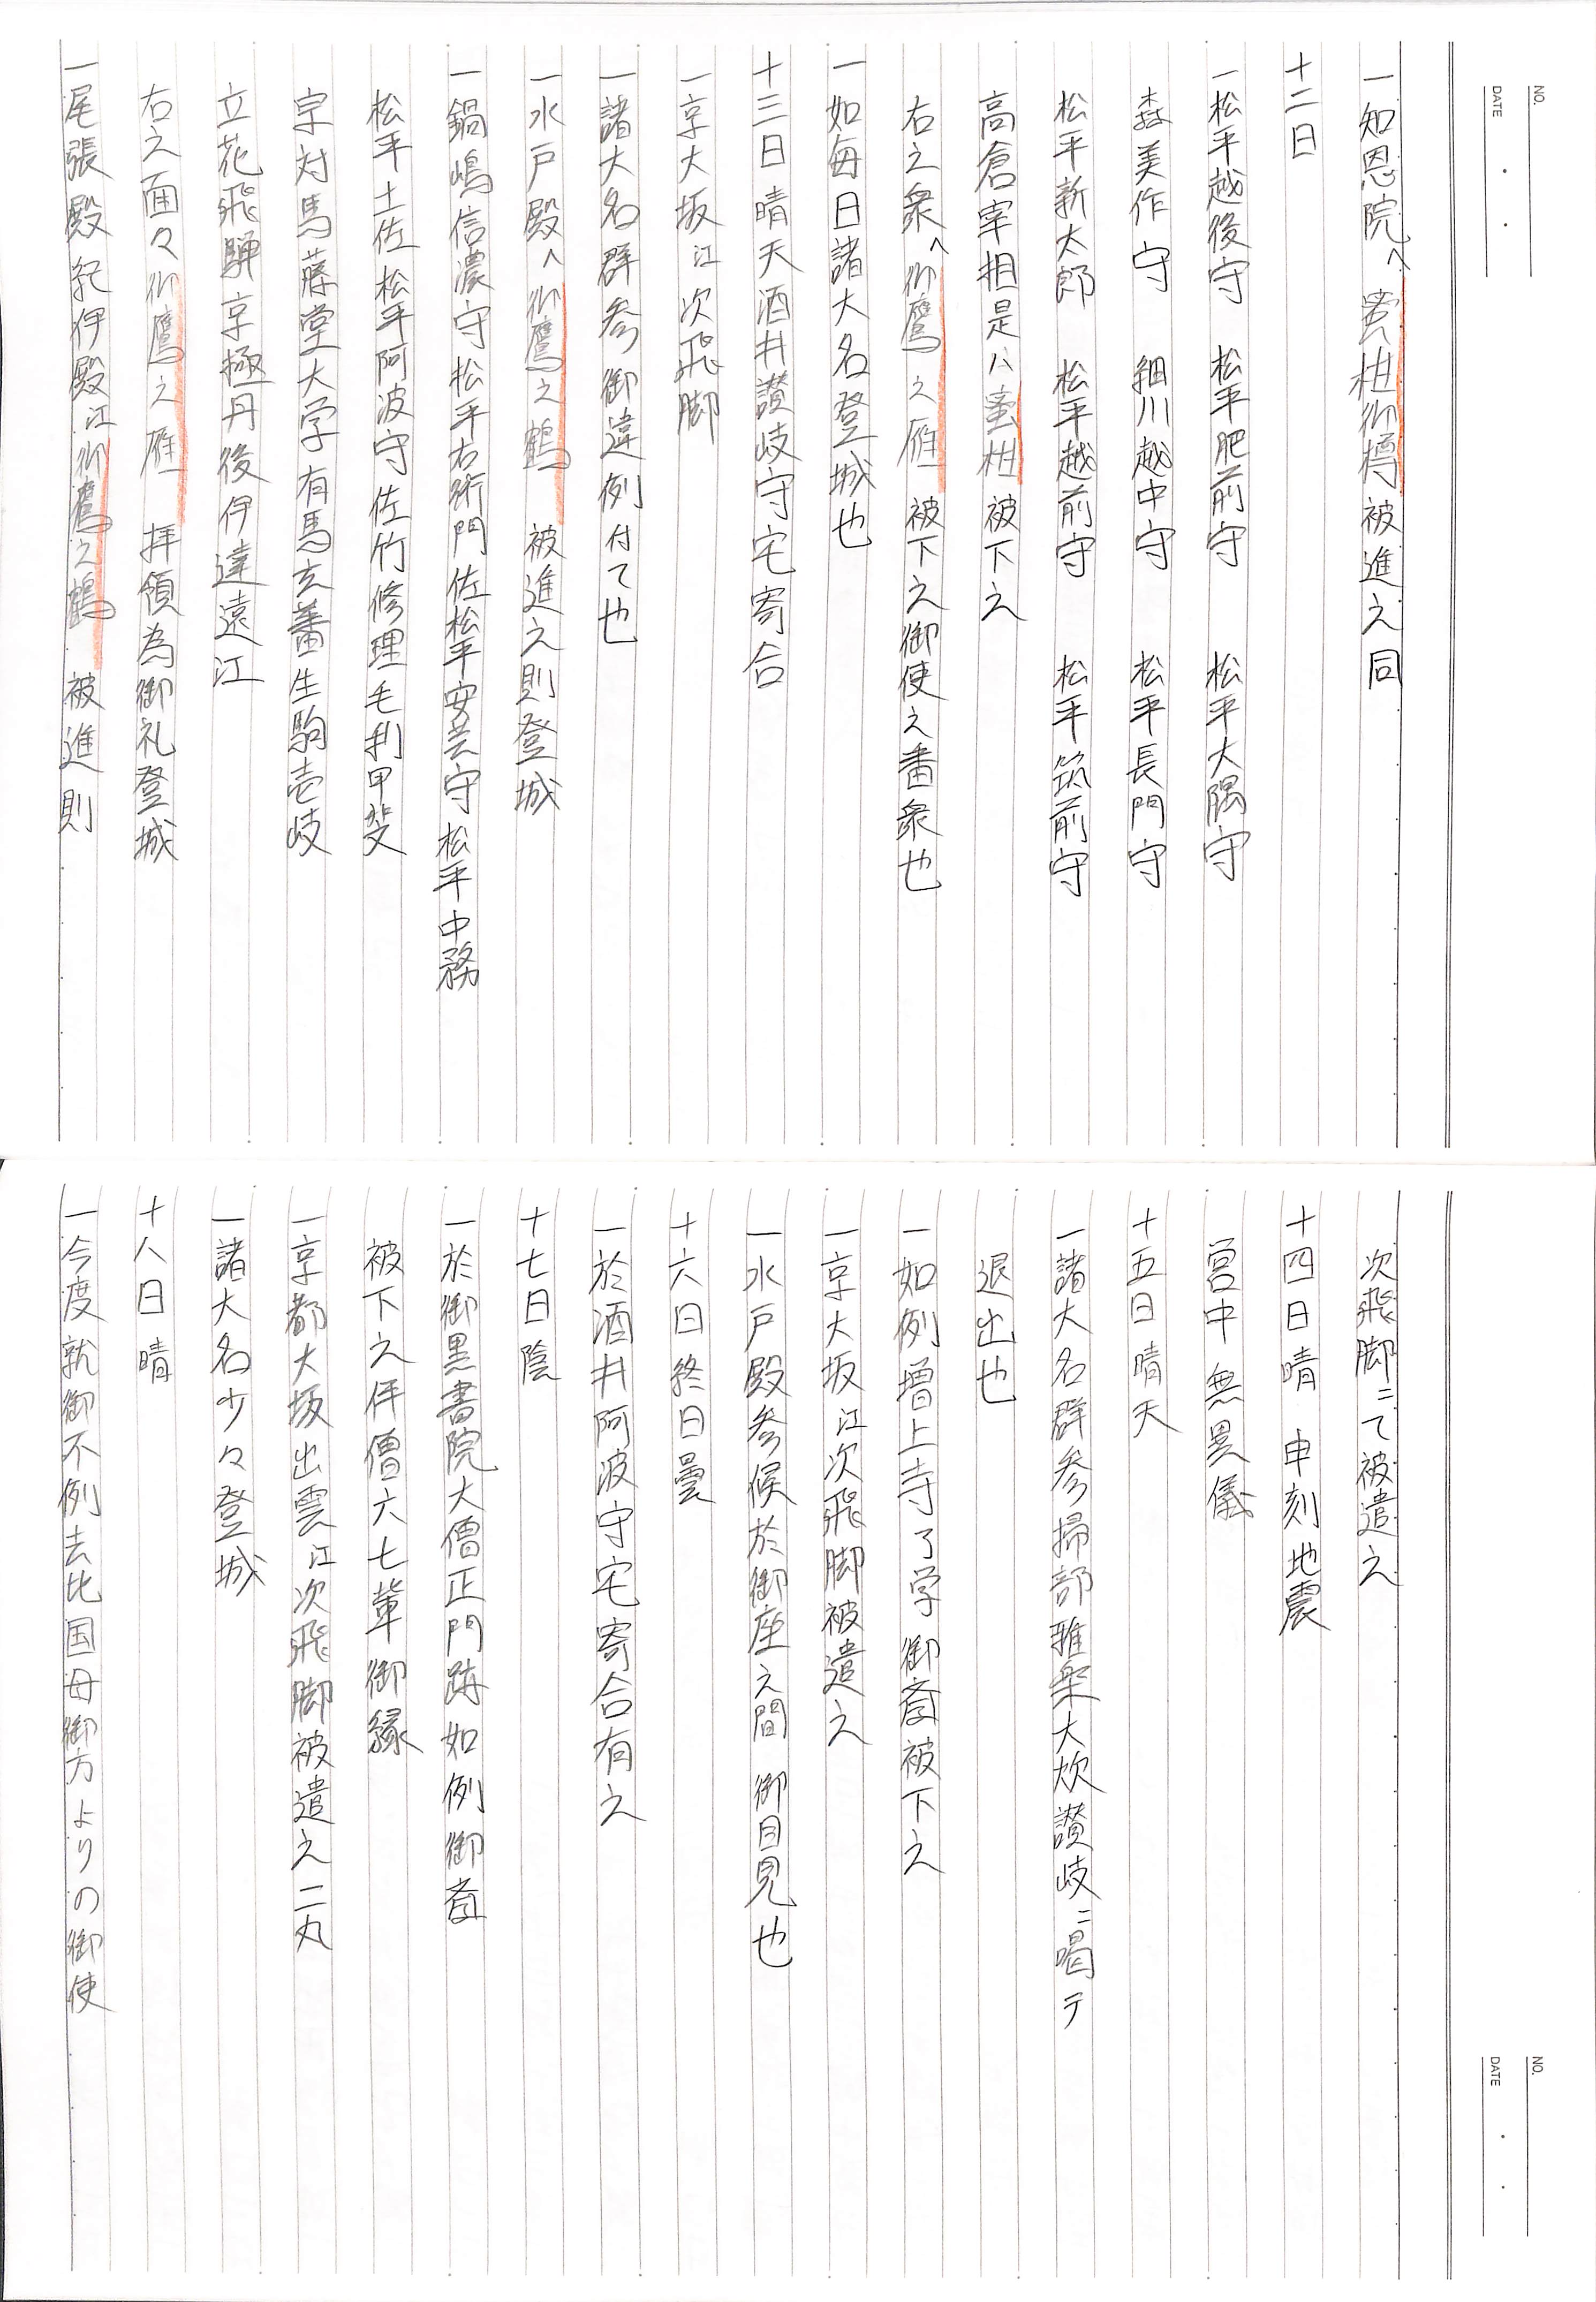 NO.
DATE
一知恩院へ蜜柑御樽被進之同
十二日
一松平越後守 松平肥前守 松平大隅守
森美作守 細川越中守 松平長門守
松平新太郎 松平越前守 松平筑前守
高倉宰相是ハ蜜柑被下之
右之衆へ御鷹之雁被下之御使之番衆也
一如毎日諸大名登城也
十三日晴天酒井讃岐守宅寄合
一京大坂江次飛脚
一諸大名群参御違例付て也
一水戸殿へ御鷹之鶴 被進之則登城
一鍋嶋信濃守松平右衛門佐松平安芸守松平中務
松平土佐松平阿波守佐竹修理毛利甲斐
宗対馬藤堂大学有馬玄蕃生駒壱岐
立花飛騨京極丹後伊達遠江
右之面々御鷹之雁 拝領為御礼登城
一尾張殿紀伊殿江御鷹之鶴 被進則
NO.
DATE
次飛脚ニて被遣之
十四日晴 申刻地震
営中無異儀
十五日晴天
一諸大名群参掃部雅楽大炊讃岐ニ喝テ
退出也
一如例増上寺了学御斎被下之
一京大坂江次飛脚被遣之
一水戸殿参候於御座之間 御目見也
十六日終日曇
一於酒井阿波守宅寄合有之
十七日陰
一於御黒書院大僧正門跡如例御斎
被下之伴僧六七輩御縁
一京都大坂出雲江次飛脚被遣之二丸
一諸大名少々登城
十八日晴
一今度就御不例去比国母御方よりの御使